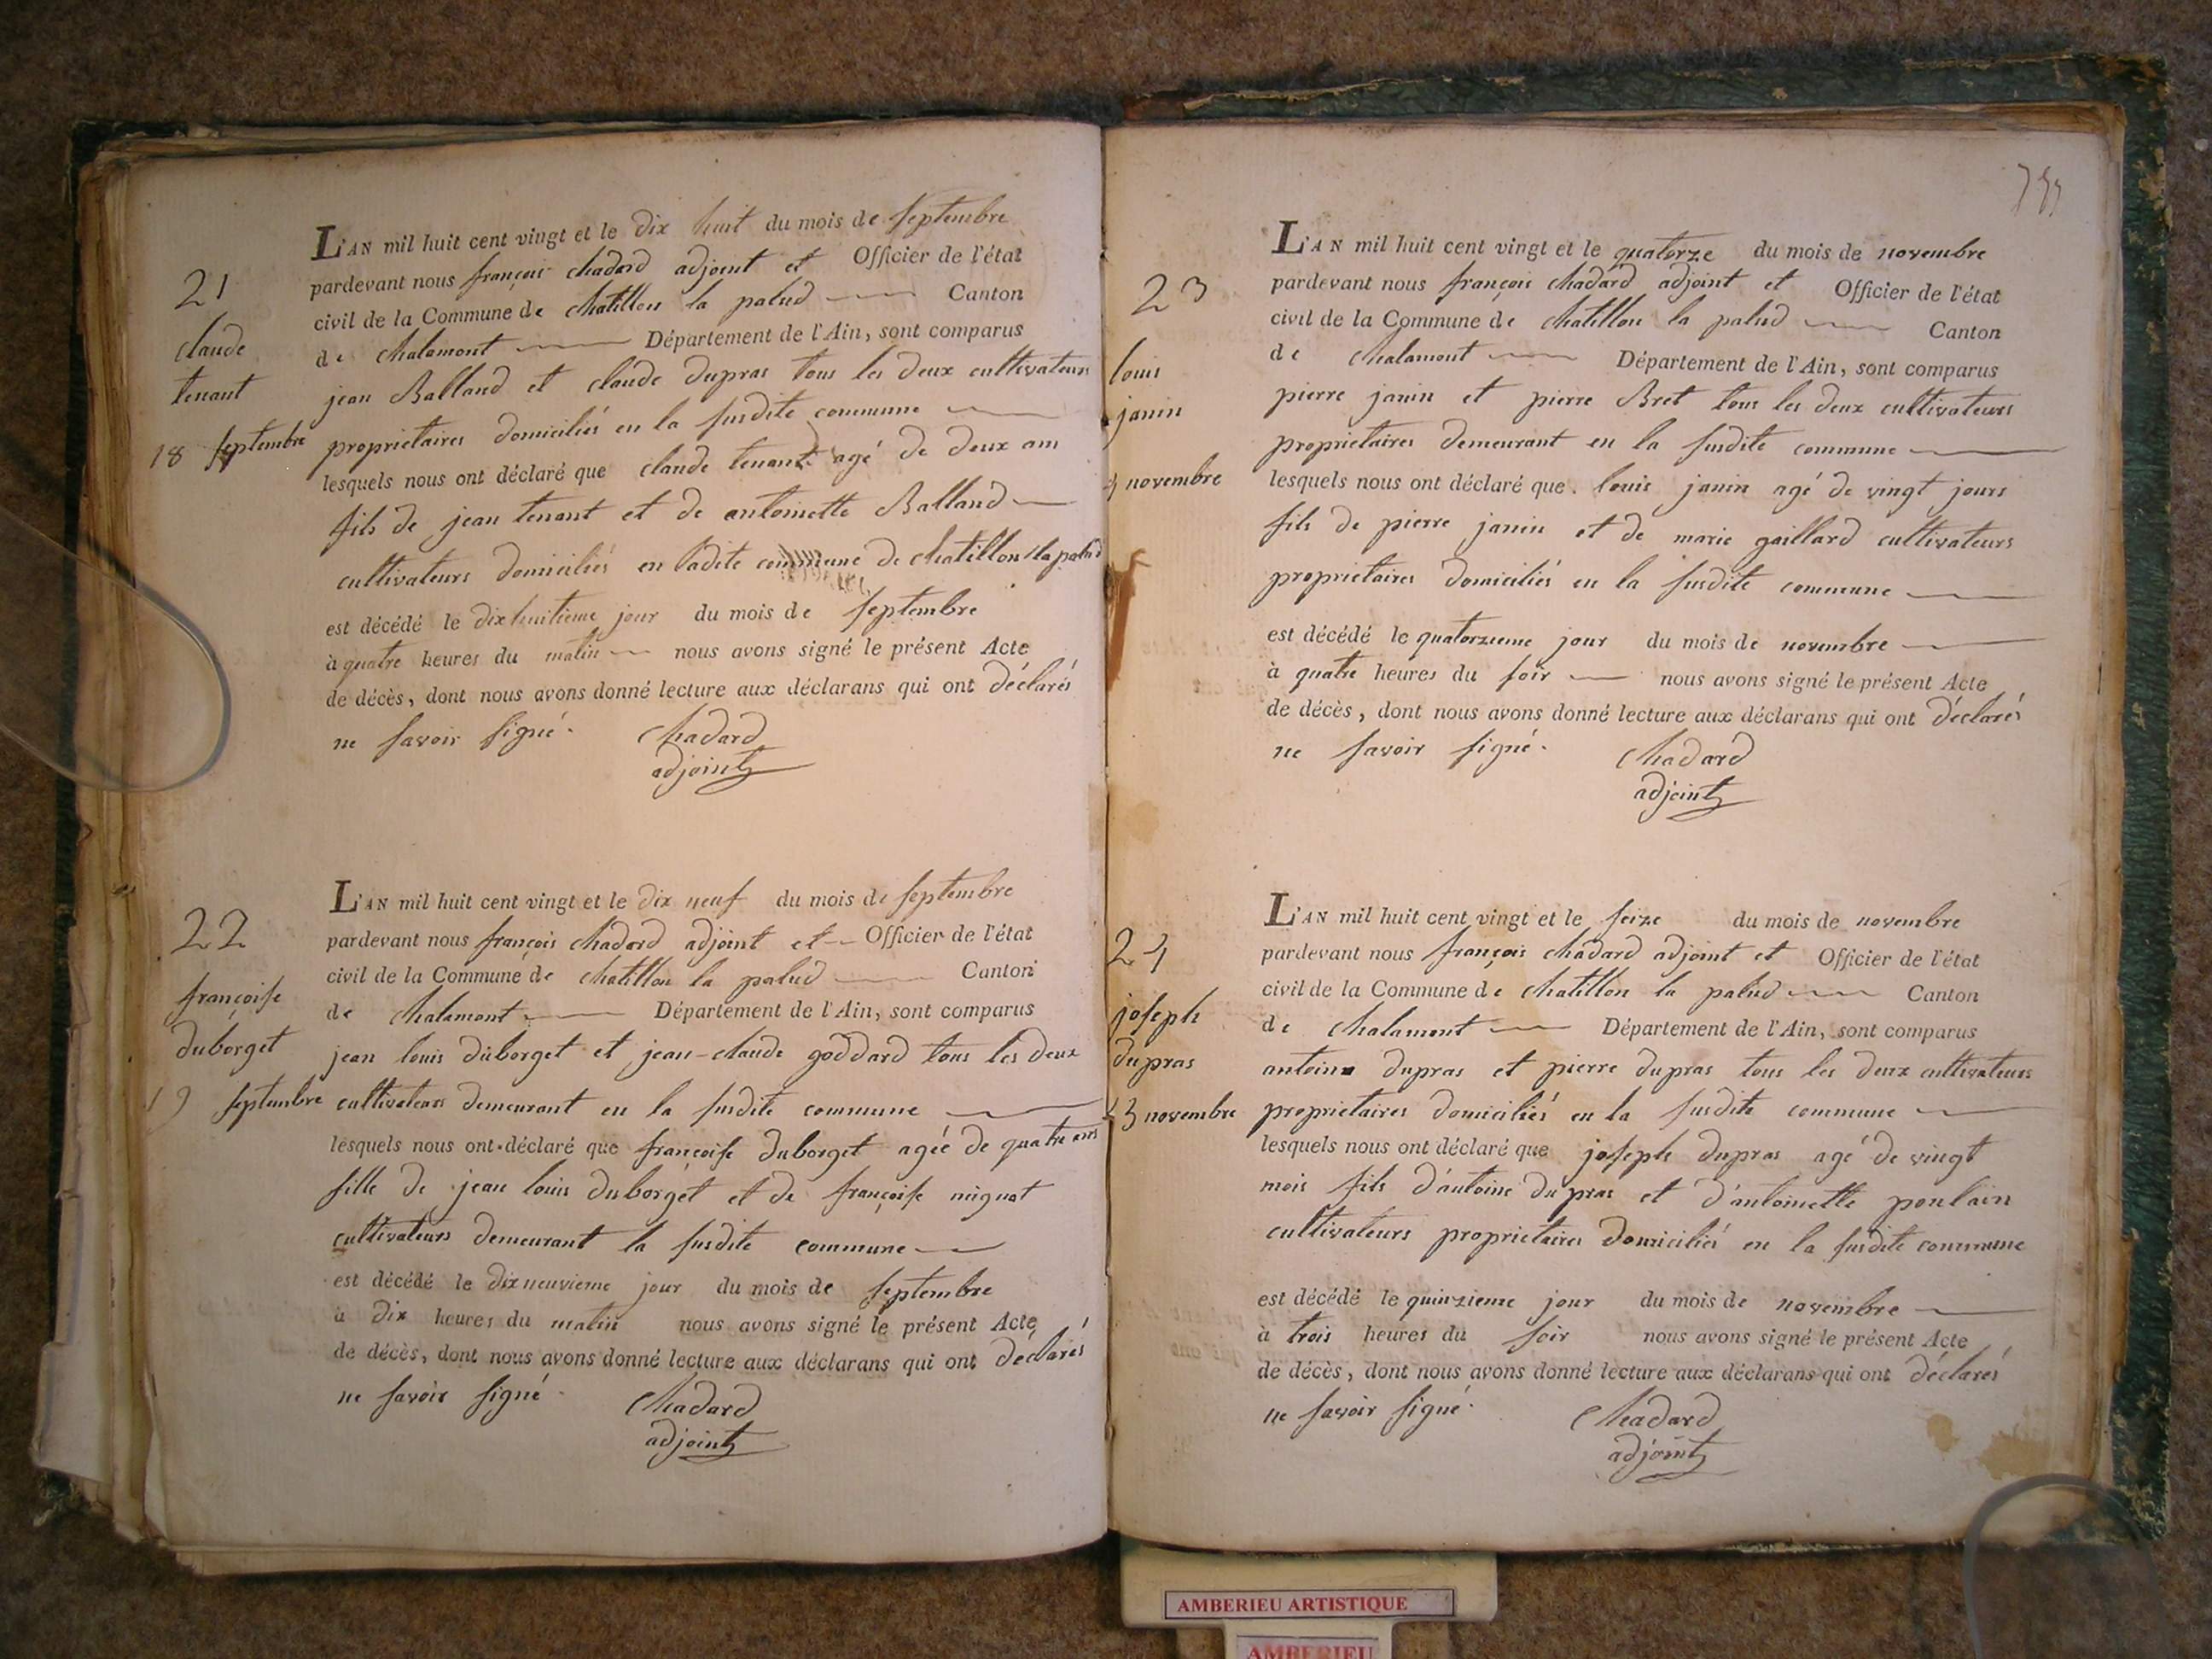 L'AN mil huit cent vingt et le dix huit du mois de septembre
pardevant nous françois chadard adjoint et Officier de l'état
civil de la Commune de chatillon la palud Canton
de chalamont Département de l'Ain, sont comparus
jean Balland et claude dupras tous les deux cultivateurs
proprietaires domiciliés en la susdite commune
lesquels nous ont déclaré que claude tenant agé de deux ans
fils de jean tenant et de antoinette Balland
cultivateurs domiciliés en ladite commune de chatillon la palud
est décédé le dix huitieme jour du mois de septembre
à quatre heures du matin nous avons signé le présent Acte
de décès, dont nous avons donné lecture aux déclarans qui ont déclarés
ne savoir signé.
chadard
adjoint
21
claude
tenant
18 septembre
L'AN mil huit cent vingt et le dix neuf du mois de septembre
pardevant nous françois chadard adjoint et Officier de l'état
civil de la Commune de chatillon la palud Canton
de chalamont Département de l'Ain, sont comparus
jean louis duborget et jean-claude goddard tous les deux
cultivateurs demeurant en la susdite commune
lesquels nous ont déclaré que françoise duborget agée de quatre ans
fille de jean louis duborget et de françoise mignat
cultivateurs demeurant la susdite commune
est décédé le dix neuvieme jour du mois de septembre
à dix heures du matin nous avons signé le présent Acte
de décès, dont nous avons donné lecture aux déclarans qui ont déclarés
ne savoir signé.
chadard
adjoint
22
françoise
duborget
19 septembre
L'AN mil huit cent vingt et le quatorze du mois de novembre
pardevant nous françois chadard adjoint et Officier de l'état
civil de la Commune de chatillon la palud Canton
de chalamont Département de l'Ain, sont comparus
pierre janin et pierre Bret tous les deux cultivateurs
proprietaires demeurant en la susdite commune
lesquels nous ont déclaré que louis janin agé de vingt jours
fils de pierre janin et de marie gaillard cultivateurs
proprietaires domiciliés en la susdite commune
est décédé le quatorzieme jour du mois de novembre
à quatre heures du soir nous avons signé le présent Acte
de décès, dont nous avons donné lecture aux déclarans qui ont déclarés
ne savoir signé.
chadard
adjoint
23
louis
janin
4 novembre
L'AN mil huit cent vingt et le seize du mois de novembre
pardevant nous françois chadard adjoint et Officier de l'état
civil de la Commune de chatillon la palud Canton
de chalamont Département de l'Ain, sont comparus
antoine dupras et pierre dupras tous les deux cultivateurs
proprietaires domiciliés en la susdite commune
lesquels nous ont déclaré que joseph dupras agé de vingt
mois fils d'antoine dupras et d'antoinette poulain
cultivateurs proprietaires domiciliés en la susdite commune
est décédé le quinzieme jour du mois de novembre
à trois heures du soir nous avons signé le présent Acte
de décès, dont nous avons donné lecture aux déclarans qui ont déclarés
ne savoir signé.
chadard
adjoint
24
joseph
dupras
novembre
AMBERIEU ARTISTIQUE
AMBERIEU